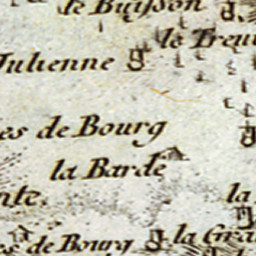 le Buisson
le Treu
Julienne
es de Bourg
la Barde
nte.
la
es de Bourg
la Gra